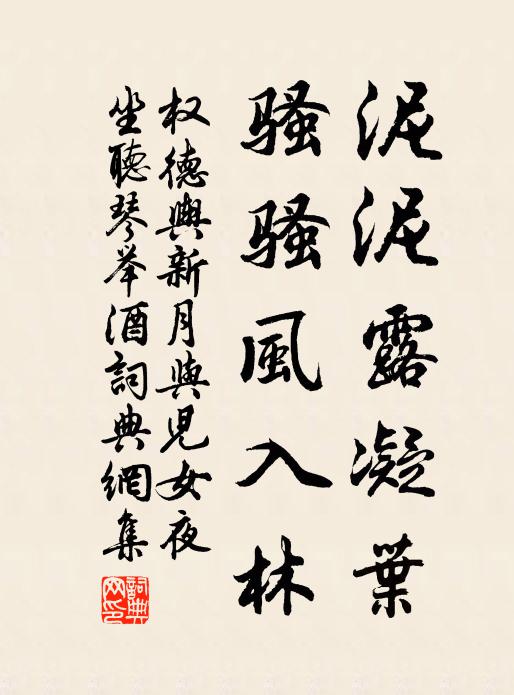 泥泥露凝葉
騷騷風入林
权德輿新月與児女夜
坐聽琴举酒詞典網集
詞典网印